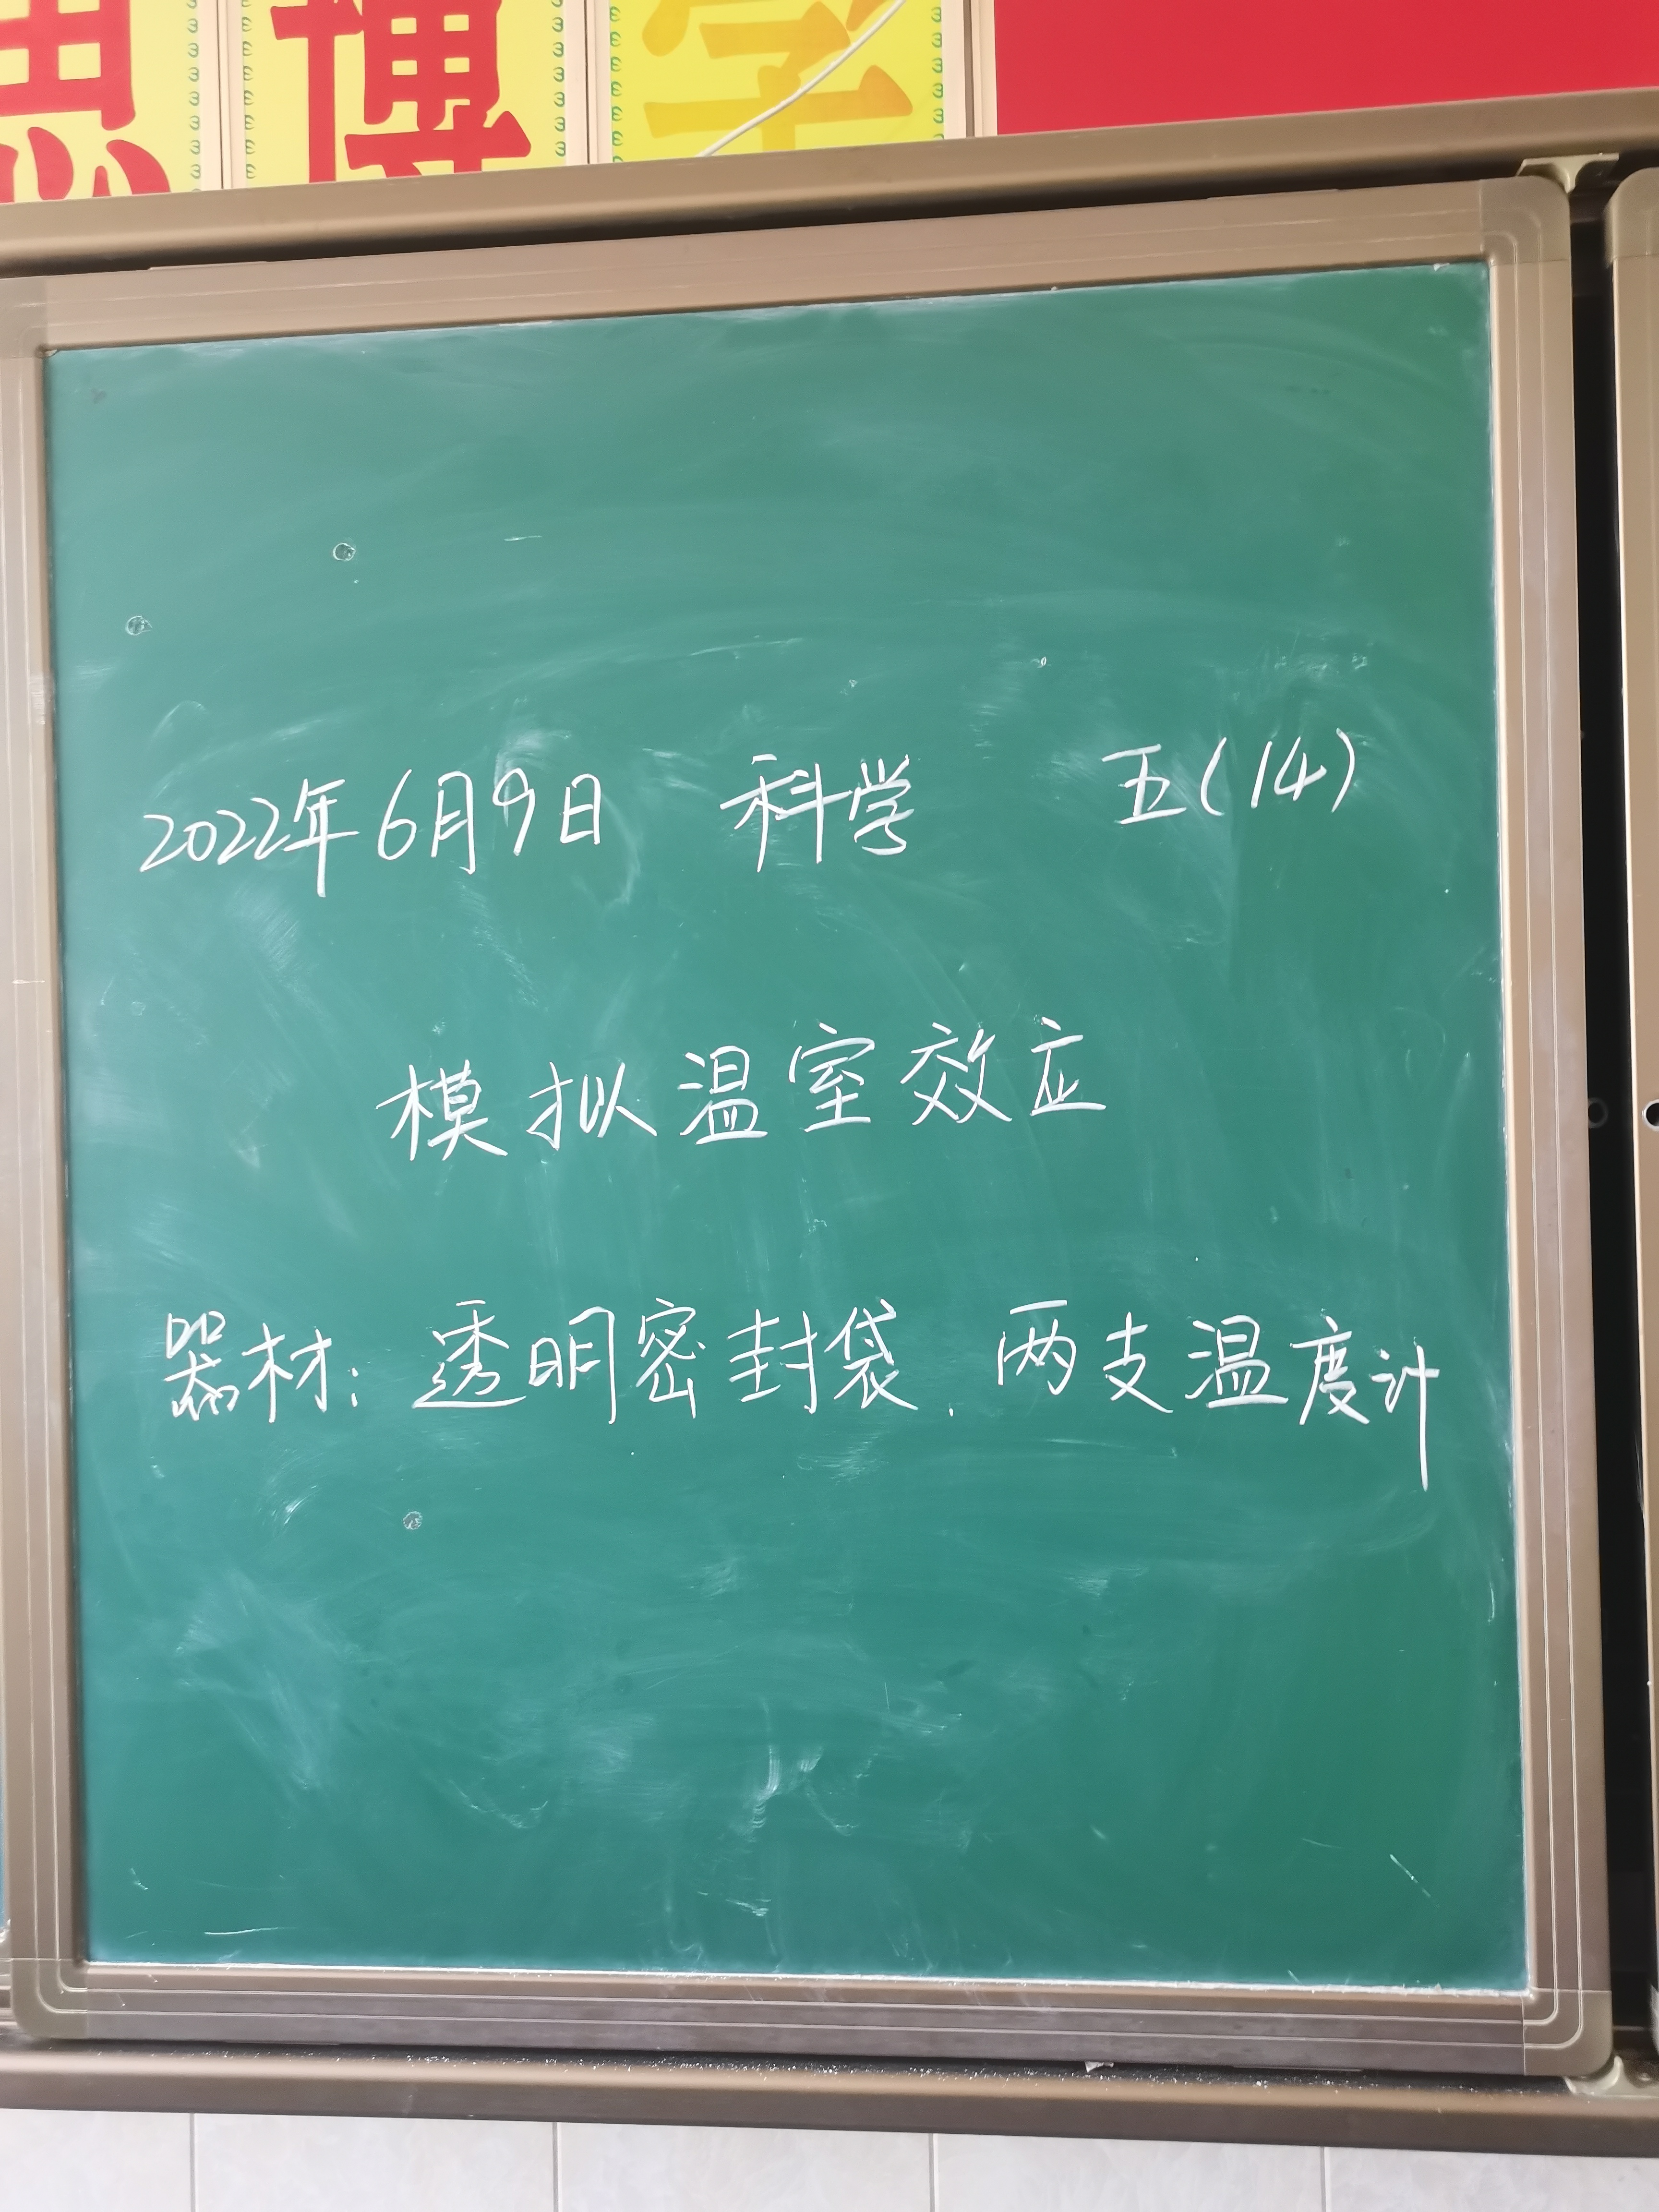 思博学
2022年6月9日 科学 五(14)
模拟温室效应
器材：透明密封袋、两支温度计